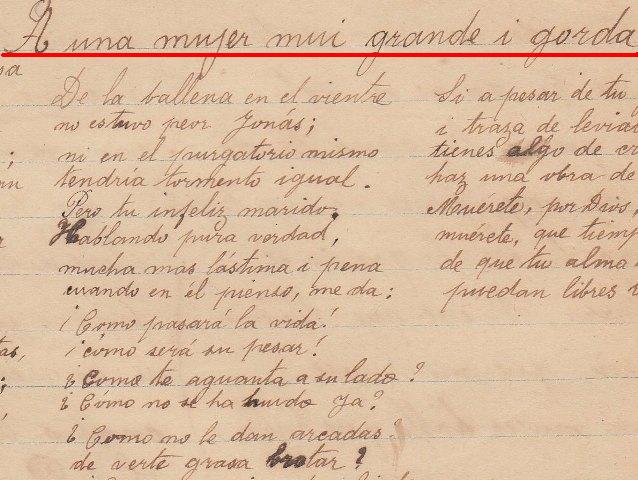 A una mujer mui grande i gorda
De la ballena en el vientre
no estuvo peor Jonas;
ni en el purgatorio mismo
tendría tormento igual.
Pero tu infeliz marido,
Hablando pura verdad,
mucha mas lástima i pena
cuando en él pienso, me da:
¡Cómo pasará la vida!
¡cómo será su pesar!
¿Como te aguanta a su lado?
¿Cómo no se ha huido ya?
¿Como no le dan arcadas
de verte grasa brotar?
Si a pesar de tu
i traza de levia
tienes algo de cr
haz una obra de
Muérete, por Dios,
muérete, que tiemp
de que tu alma
puedan libres